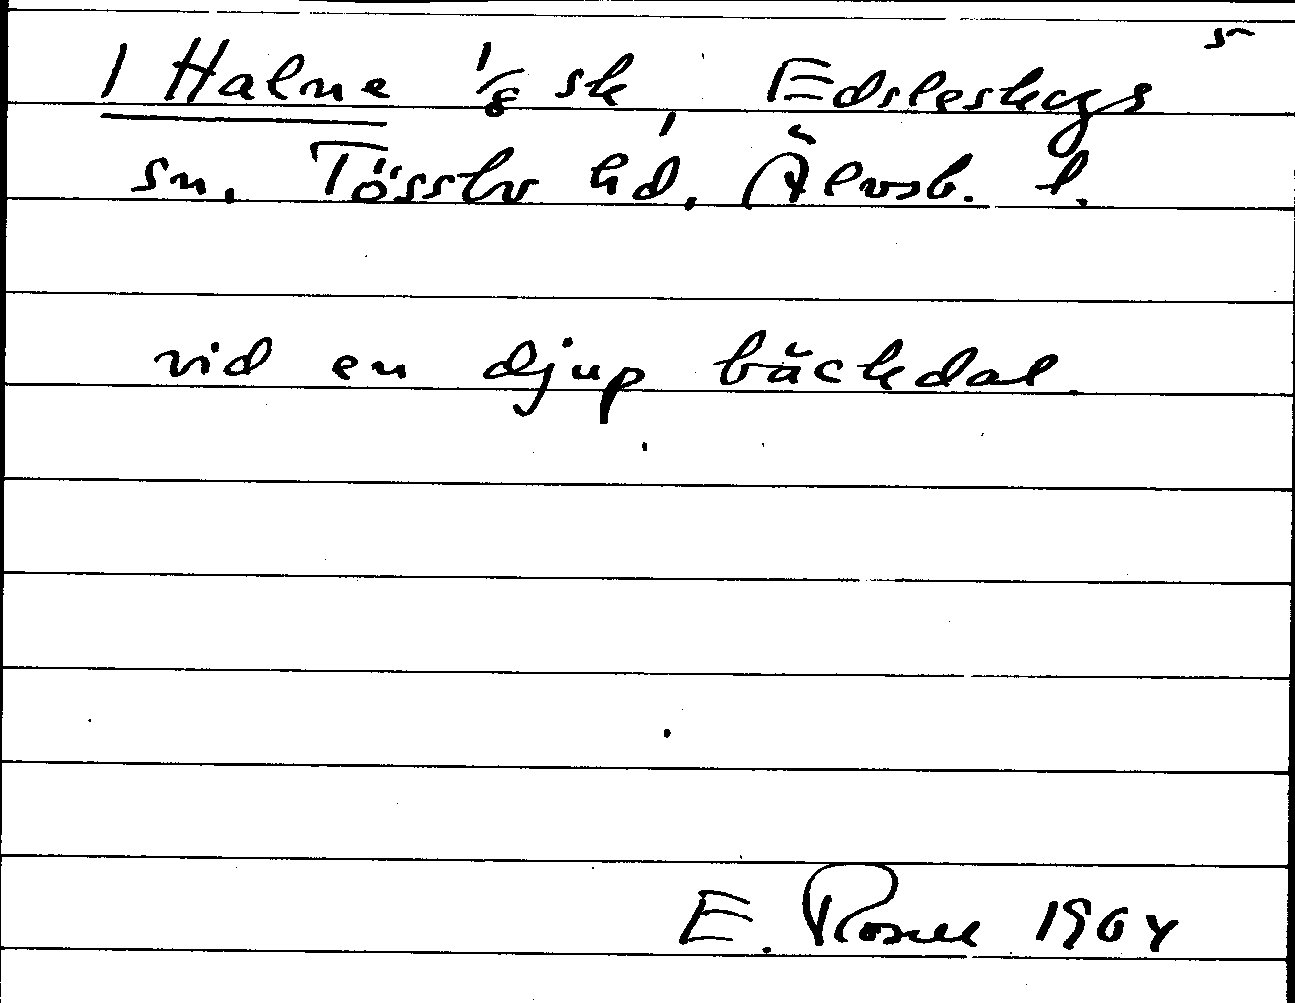 5
1 Halne 1/8 sk, Edsleskogs
sn. Tössbo hd. Älvsb. l.
vid en djup bäckdal
E. Rosell 1964